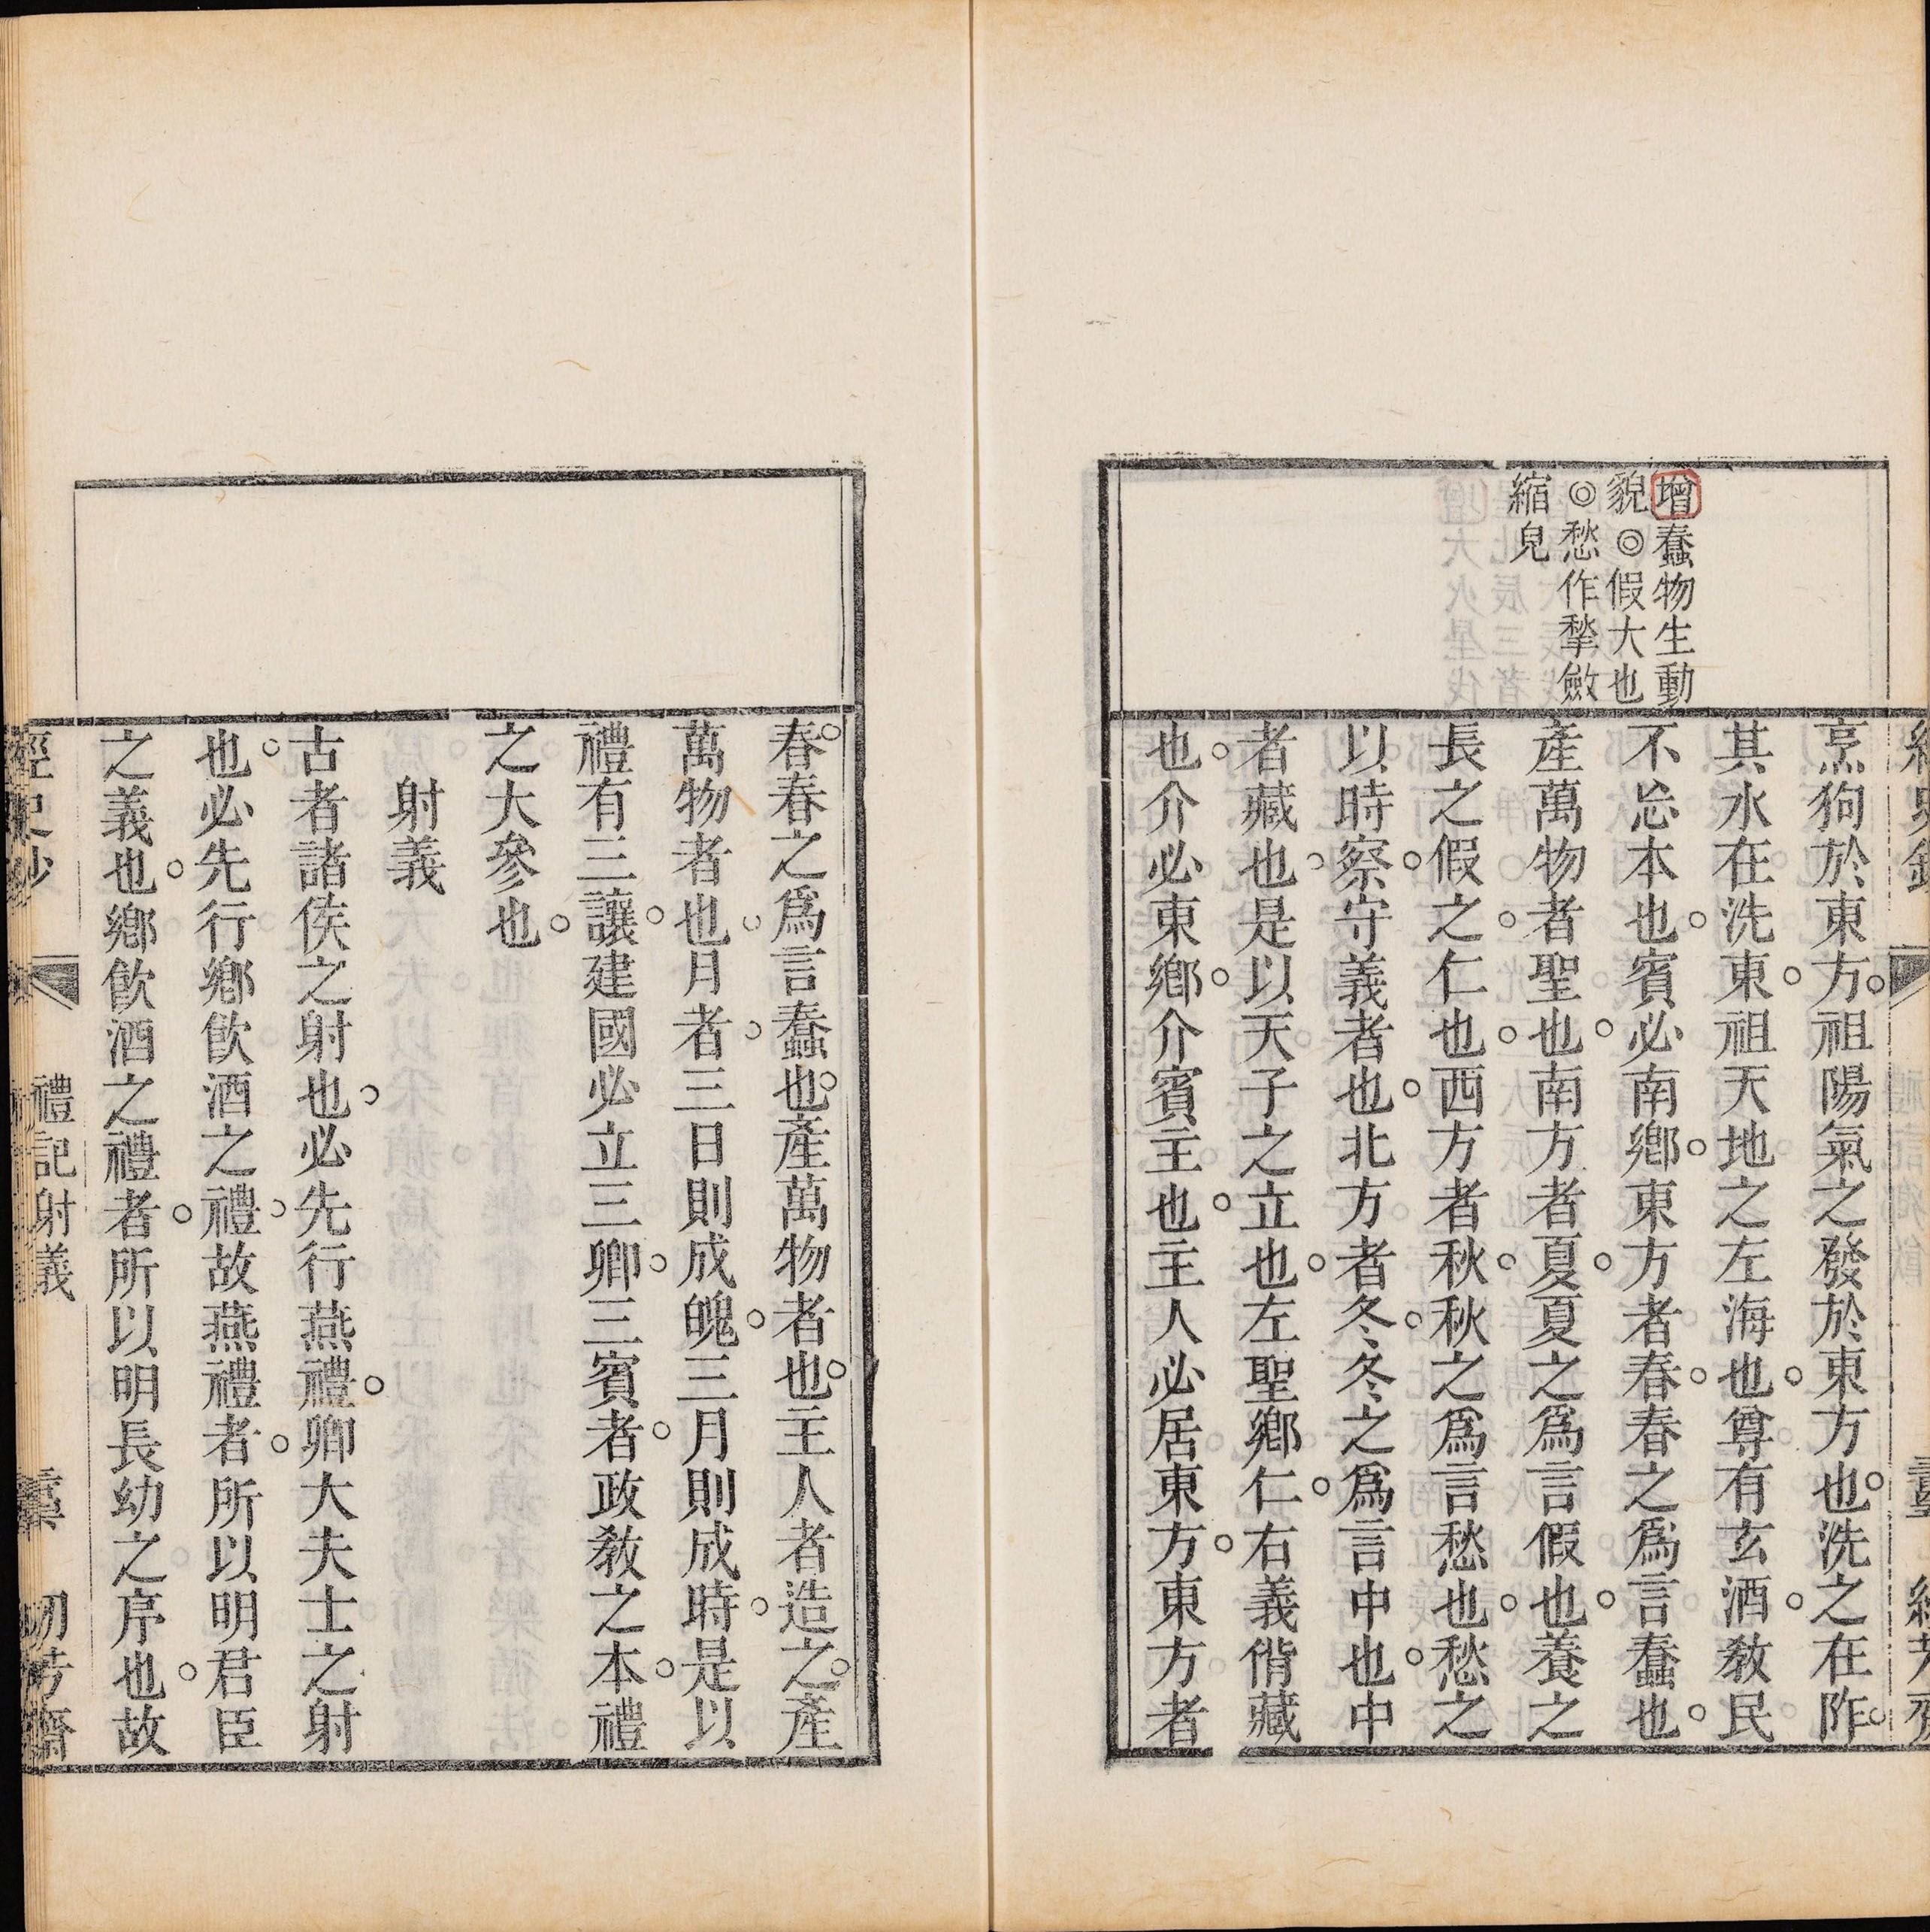 增蠢物生動
貌◎假大也
◎愁作揫斂
縮皃
烹狗於東方。祖陽氣之發於東方也。洗之在阼。
其水在洗東。祖天地之左海也。尊有玄酒。敎民
不忘本也。賓必南鄕。東方者春。春之爲言蠢也。
產萬物者聖也。南方者夏。夏之爲言假也。養之
長之假之。仁也。西方者秋。秋之爲言愁也。愁之
以時察。守義者也。北方者冬。冬之爲言中也。中
者藏也。是以天子之立也。左聖鄕仁。右義偝藏
也。介必東鄕。介賓主也。主人必居東方。東方者
春。春之爲言蠢也。產萬物者也。主人者造之。產
萬物者也。月者。三日則成魄。三月則成時。是以
禮有三讓。建國必立三卿。三賓者。政敎之本。禮
之大參也。
射義
古者諸侯之射也。必先行燕禮。卿大夫士之射
也。必先行鄕飮酒之禮。故燕禮者。所以明君臣
之義也。鄕飮酒之禮者。所以明長幼之序也。故
禮記射義